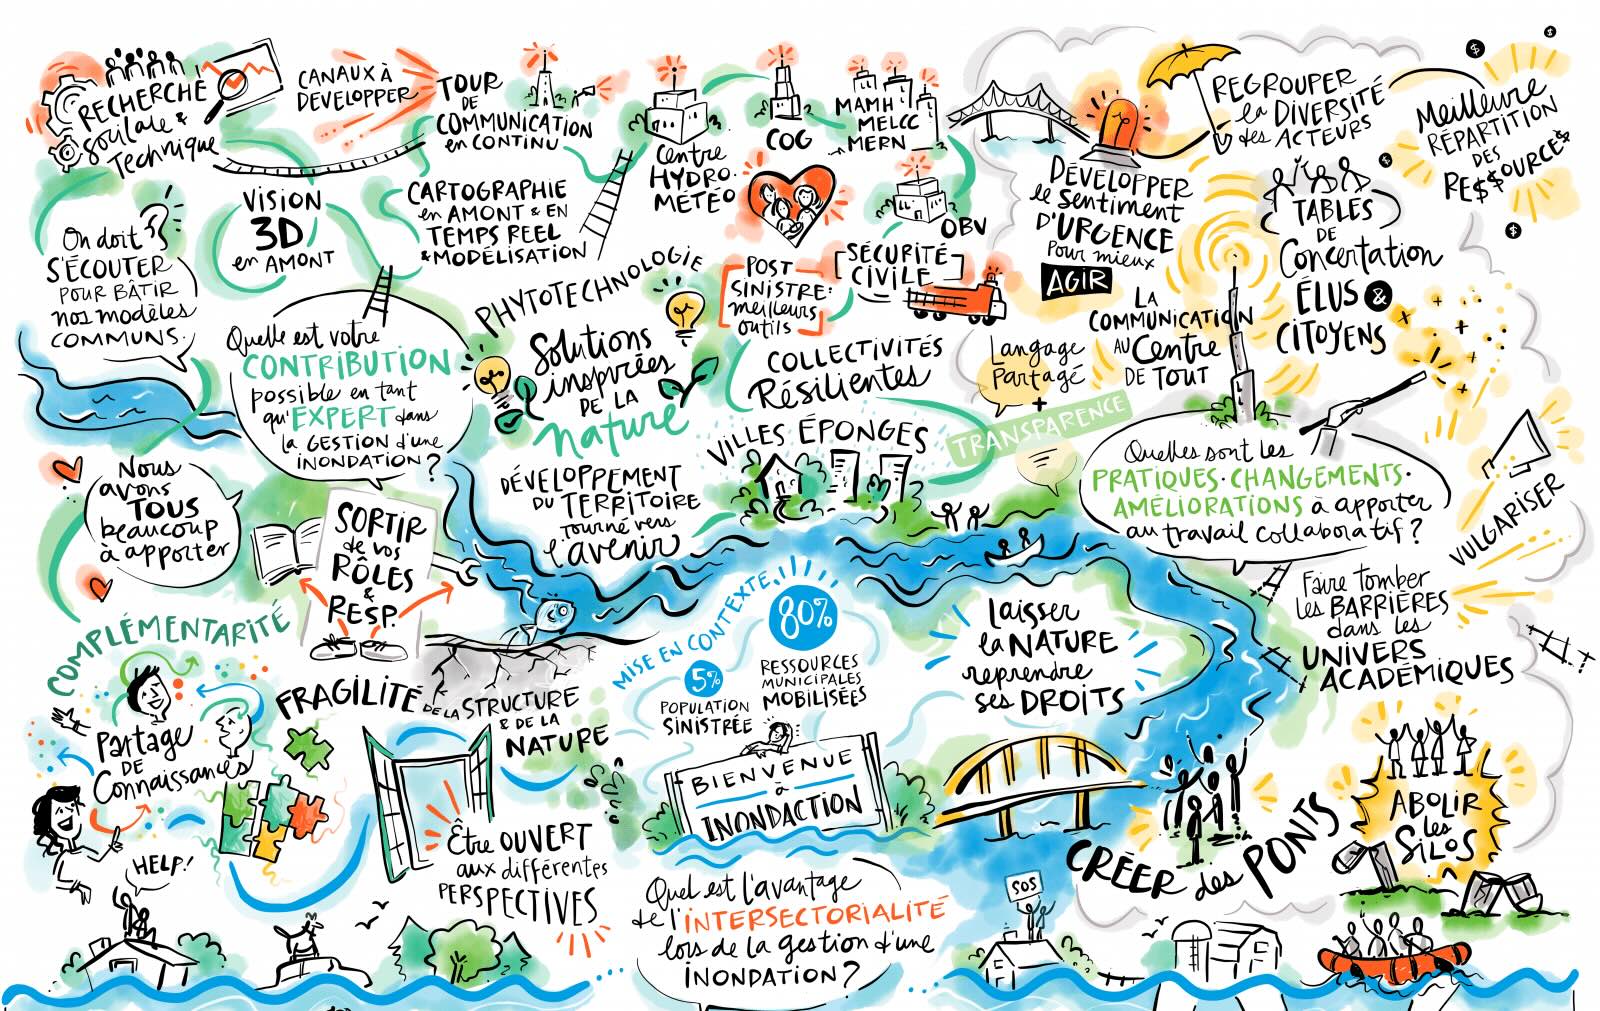 RECHERCHE
SOCIALE &
Technique
CANAUX À
DÉVELOPPER
TOUR
DE
COMMUNICATION
en CONTINU
Centre
HYDRO-
MÉTÉO
COG
MAMH
MELCC
MERN
OBV
VISION
3D
en AMONT
CARTOGRAPHIE
en AMONT & EN
TEMPS REEL
& MODÉLISATION
On doit
S'ÉCOUTER
POUR BÂTIR
nos modèles
COMMUNS.
Quelle est votre
CONTRIBUTION
possible en tant
qu'EXPERT dans
la GESTION d'une
INONDATION?
PHYTOTECHNOLOGIE
Solutions
inspirées
DE LA
nature
POST
SINISTRE:
meilleurs
outils
SÉCURITÉ
CIVILE
COLLECTIVITÉS
Résilientes
VILLES ÉPONGES
DÉVELOPPEMENT
DU TERRITOIRE
tourné vers
l'avenir
DÉVELOPPER
le sentiment
D'URGENCE
Pour mieux
AGIR
REGROUPER
la DIVERSITÉ
des ACTEURS
Meilleure
RÉPARTITION
DES
RE$$OURCE$
TABLES
DE
Concertation
ÉLUS &
CITOYENS
LA
COMMUNICATION
AU Centre
DE TOUT
Langage
Partagé
+
TRANSPARENCE
Quelles sont les
PRATIQUES·CHANGEMENTS·
AMÉLIORATIONS à apporter
au travail collaboratif?
VULGARISER
Nous
avons
TOUS
beaucoup
à apporter
SORTIR
de vos
RÔLES
&
RESP.
COMPLÉMENTARITÉ
Partage
DE
Connaissances
HELP!
FRAGILITÉ
DE LA STRUCTURE
& DE LA
NATURE
Être OUVERT
aux différentes
PERSPECTIVES
MISE EN CONTEXTE
80%
RESSOURCES
MUNICIPALES
MOBILISÉES
5%
POPULATION
SINISTRÉE
BIENVENUE
à
INONDACTION
Quel est l'avantage
de l'INTERSECTORIALITÉ
lors de la gestion d'une
INONDATION?
Laisser
la NATURE
reprendre
ses DROITS
Faire tomber
les BARRIÈRES
dans les
UNIVERS
ACADÉMIQUES
CRÉER des PONTS
ABOLIR
les
SILOS
SOS